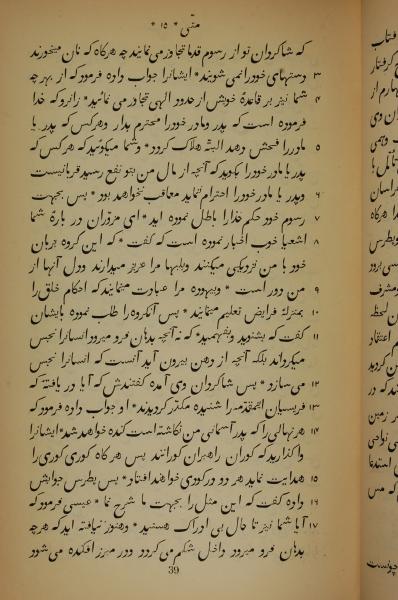 متی * ١٥ *
که شاکردان تو از رسوم قدما تجاوز می نمایند چه هرکاه که نان میخورند
٣ دستهای خود را نمی شویند * ایشانرا جواب داده فرمود که از بهر چه
٤ شما نیز بر قاعدهٔ خویش از حدود الهی تجاوز می نمائید * زانرو که خدا
فرموده است که پدر ومادر خود را محترم بدار وهرکس که پدر یا
٥ مادر را فحش دهد البته هلاک کردد * وشما میکوئید که هرکس که
پدر یا مادر خود را بکوید که آنچه از مال من بتو نفع رسید قربانیست
٦ وپدر یا مادر خود را احترام ننماید معاف خواهد بود * پس بجهت
٧ رسوم خود حکم خدا را باطل نموده اید * ای مزوران در بارهٔ شما
٨ اشعیا خوب اخبار نموده است که کفت * که این کروه بزبان
خود با من نزدیکی میکنند وبلبها مرا عزیز میدارند ودل آنها از
٩ من دور است * وبیهوده مرا عبادت مینمایند که احکام خلق را
١٠ بمنزلهٔ فرایض تعلیم مینمایند * پس آنکروه را طلب نموده بایشان
١١ کفت که بشنوید وبفهمید * که نه آنچه بدهان فرو میرود انسانرا نجس
میکرداند بلکه آنچه از دهن بیرون آید آنست که انسانرا نجس
١٢ می سازد * پس شاکردان وی آمده کفتندش که آیا دریافتهٔ که
١٣ فریسیان اینمقدمه را شنیده مکدر کردیدند * او جواب داده فرمود که
١٤ هر نهالی را که پدر آسمانی من نکاشته است کنده خواهد شد * ایشانرا
واکذارید که کوران راهبران کورانند پس هرکاه کوری کوری را
١٥ هدایت نماید هر دو در کودی خواهند افتاد * پس پطرس جوابش
١٦ داده کفت که این مثل را بجهت ما شرح نما * عیسی فرمود که
١٧ آیا شما نیز تا حال بی ادراک هستید * وهنوز نیافته اید که هرچه
بدهان فرو میرود داخل شکم می کردد ودر مبرز افکنده می شود
39